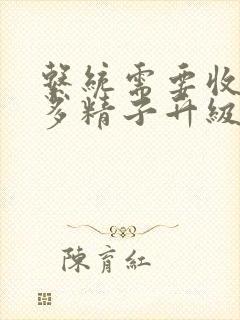 繫統需要收
多精子升級
陳育紅